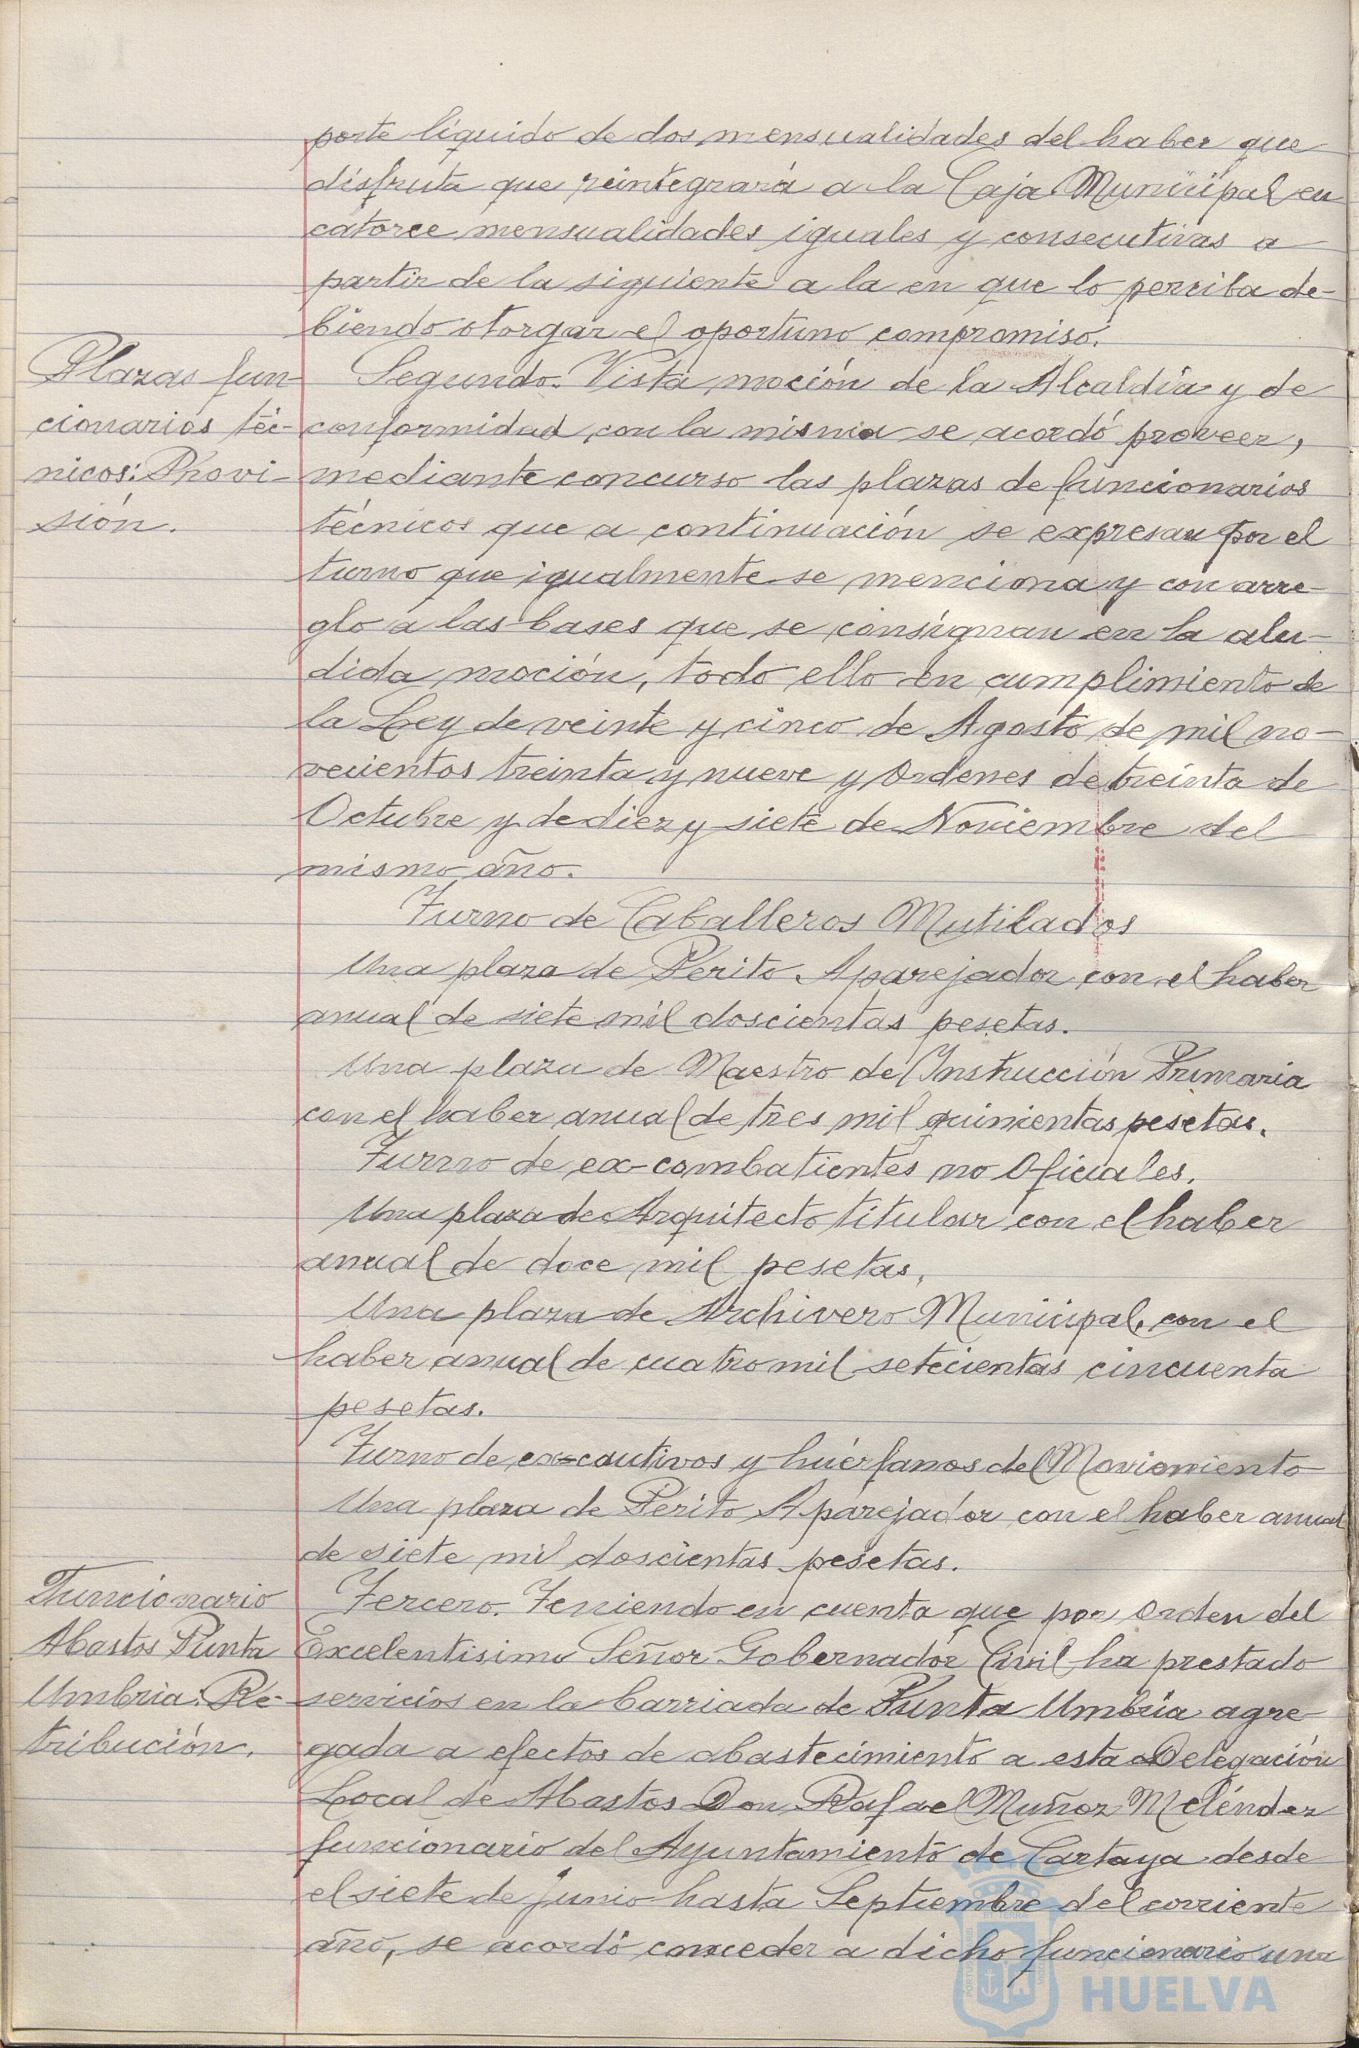 porte líquido de dos mensualidades del haber que
disfruta que reintegrará a la Caja Municipal en
catorce mensualidades iguales y consecutivas a
partir de la siguiente a la en que lo perciba de-
biendo otorgar el oportuno compromiso.
Plazas fun-
cionarios téc-
nicos: Provi-
sión.
Segundo. Vista moción de la Alcaldía y de
conformidad con la misma se acordó proveer,
mediante concurso las plazas de funcionarios
técnicos que a continuación se expresan por el
turno que igualmente se menciona y con arre-
glo a las bases que se consignan en la alu-
dida moción, todo ello en cumplimiento de
la Ley de veinte y cinco de Agosto de mil no-
vecientos treinta y nueve y Ordenes de treinta de
Octubre y de diez y siete de Noviembre del
mismo año.
Turno de Caballeros Mutilados
Una plaza de Perito Aparejador con el haber
anual de siete mil doscientas pesetas.
Una plaza de Maestro de Instrucción Primaria
con el haber anual de tres mil quinientas pesetas.
Turno de ex-combatientes no Oficiales.
Una plaza de Arquitecto titular con el haber
anual de doce mil pesetas.
Una plaza de Archivero Municipal, con el
haber anual de cuatro mil setecientas cincuenta
pesetas.
Turno de ex-cautivos y huérfanos del Movimiento
Una plaza de Perito Aparejador con el haber anual
de siete mil doscientas pesetas.
Funcionario
Abastos Punta
Umbría: Re-
tribución.
Tercero. Teniendo en cuenta que por Orden del
Excelentisimo Señor Gobernador Civil ha prestado
servicios en la barriada de Punta Umbría agre-
gada a efectos de abastecimiento a esta Delegación
Local de Abastos Don Rafael Muñoz Meléndez
funcionario del Ayuntamiento de Cartaya desde
el siete de junio hasta Septiembre del corriente
año, se acordó conceder a dicho funcionario una
HUELVA